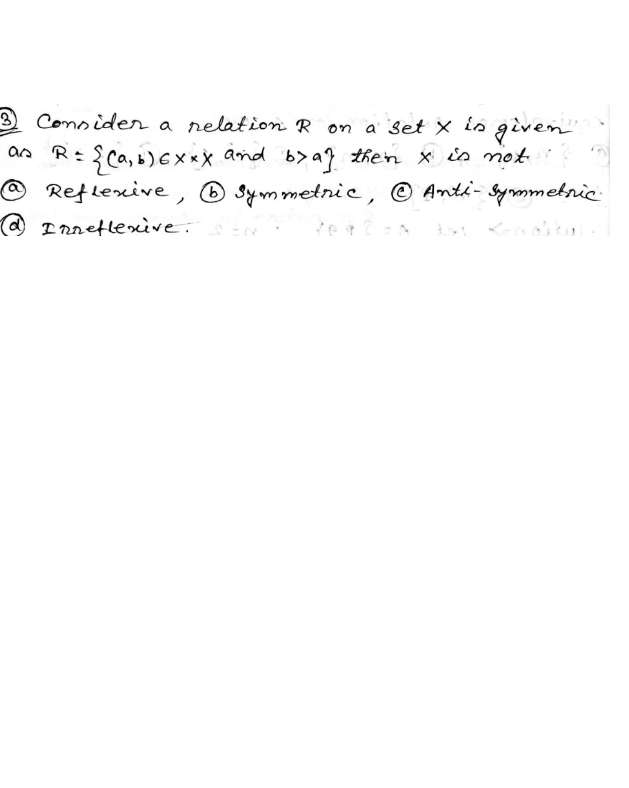 ③ Consider a relation R on a set X is given
as R = {(a, b) ∈ X × X and b > a} then X is not
ⓐ Reflexive, ⓑ Symmetric, ⓒ Anti-Symmetric.
ⓓ Irreflexive.